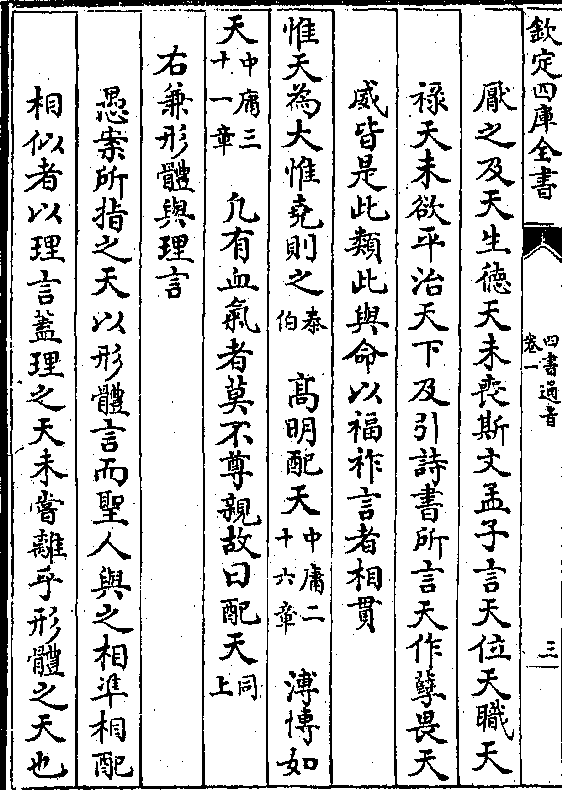 欽定四庫全書
四書通旨
卷一
三
厭之及天生德天未喪斯文孟子言天位天職天
禄天未欲平治天下及引詩書所言天作孽畏天
威皆是此類此與命以福祚言者相貫
惟天為大惟堯則之泰伯 高明配天中庸二十六章 溥博如
天中庸三十一章 凡有血氣者莫不尊親故曰配天同上
右兼形體與理言
愚案所指之天以形體言而聖人與之相凖相配
相似者以理言蓋理之天未嘗離乎形體之天也